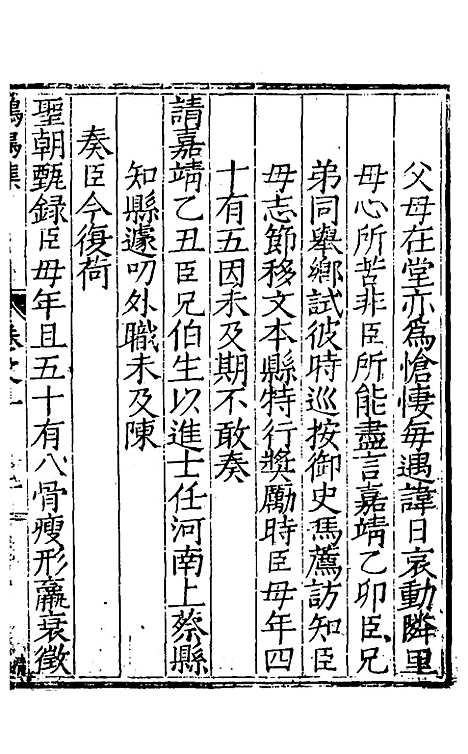 父母在堂亦爲愴悽每遇諱日哀動隣里
母心所苦非臣所能盡言嘉靖乙卯臣兄
弟同舉鄉試彼時巡按御史馬薦訪知臣
母志節移文本縣特行獎勵時臣母年四
十有五因未及期不敢奏
請嘉靖乙丑臣兄伯生以進士任河南上蔡縣
知縣遽叨外職未及陳
奏臣今復荷
聖朝甄錄臣母年且五十有八骨瘦形羸衰徵
集